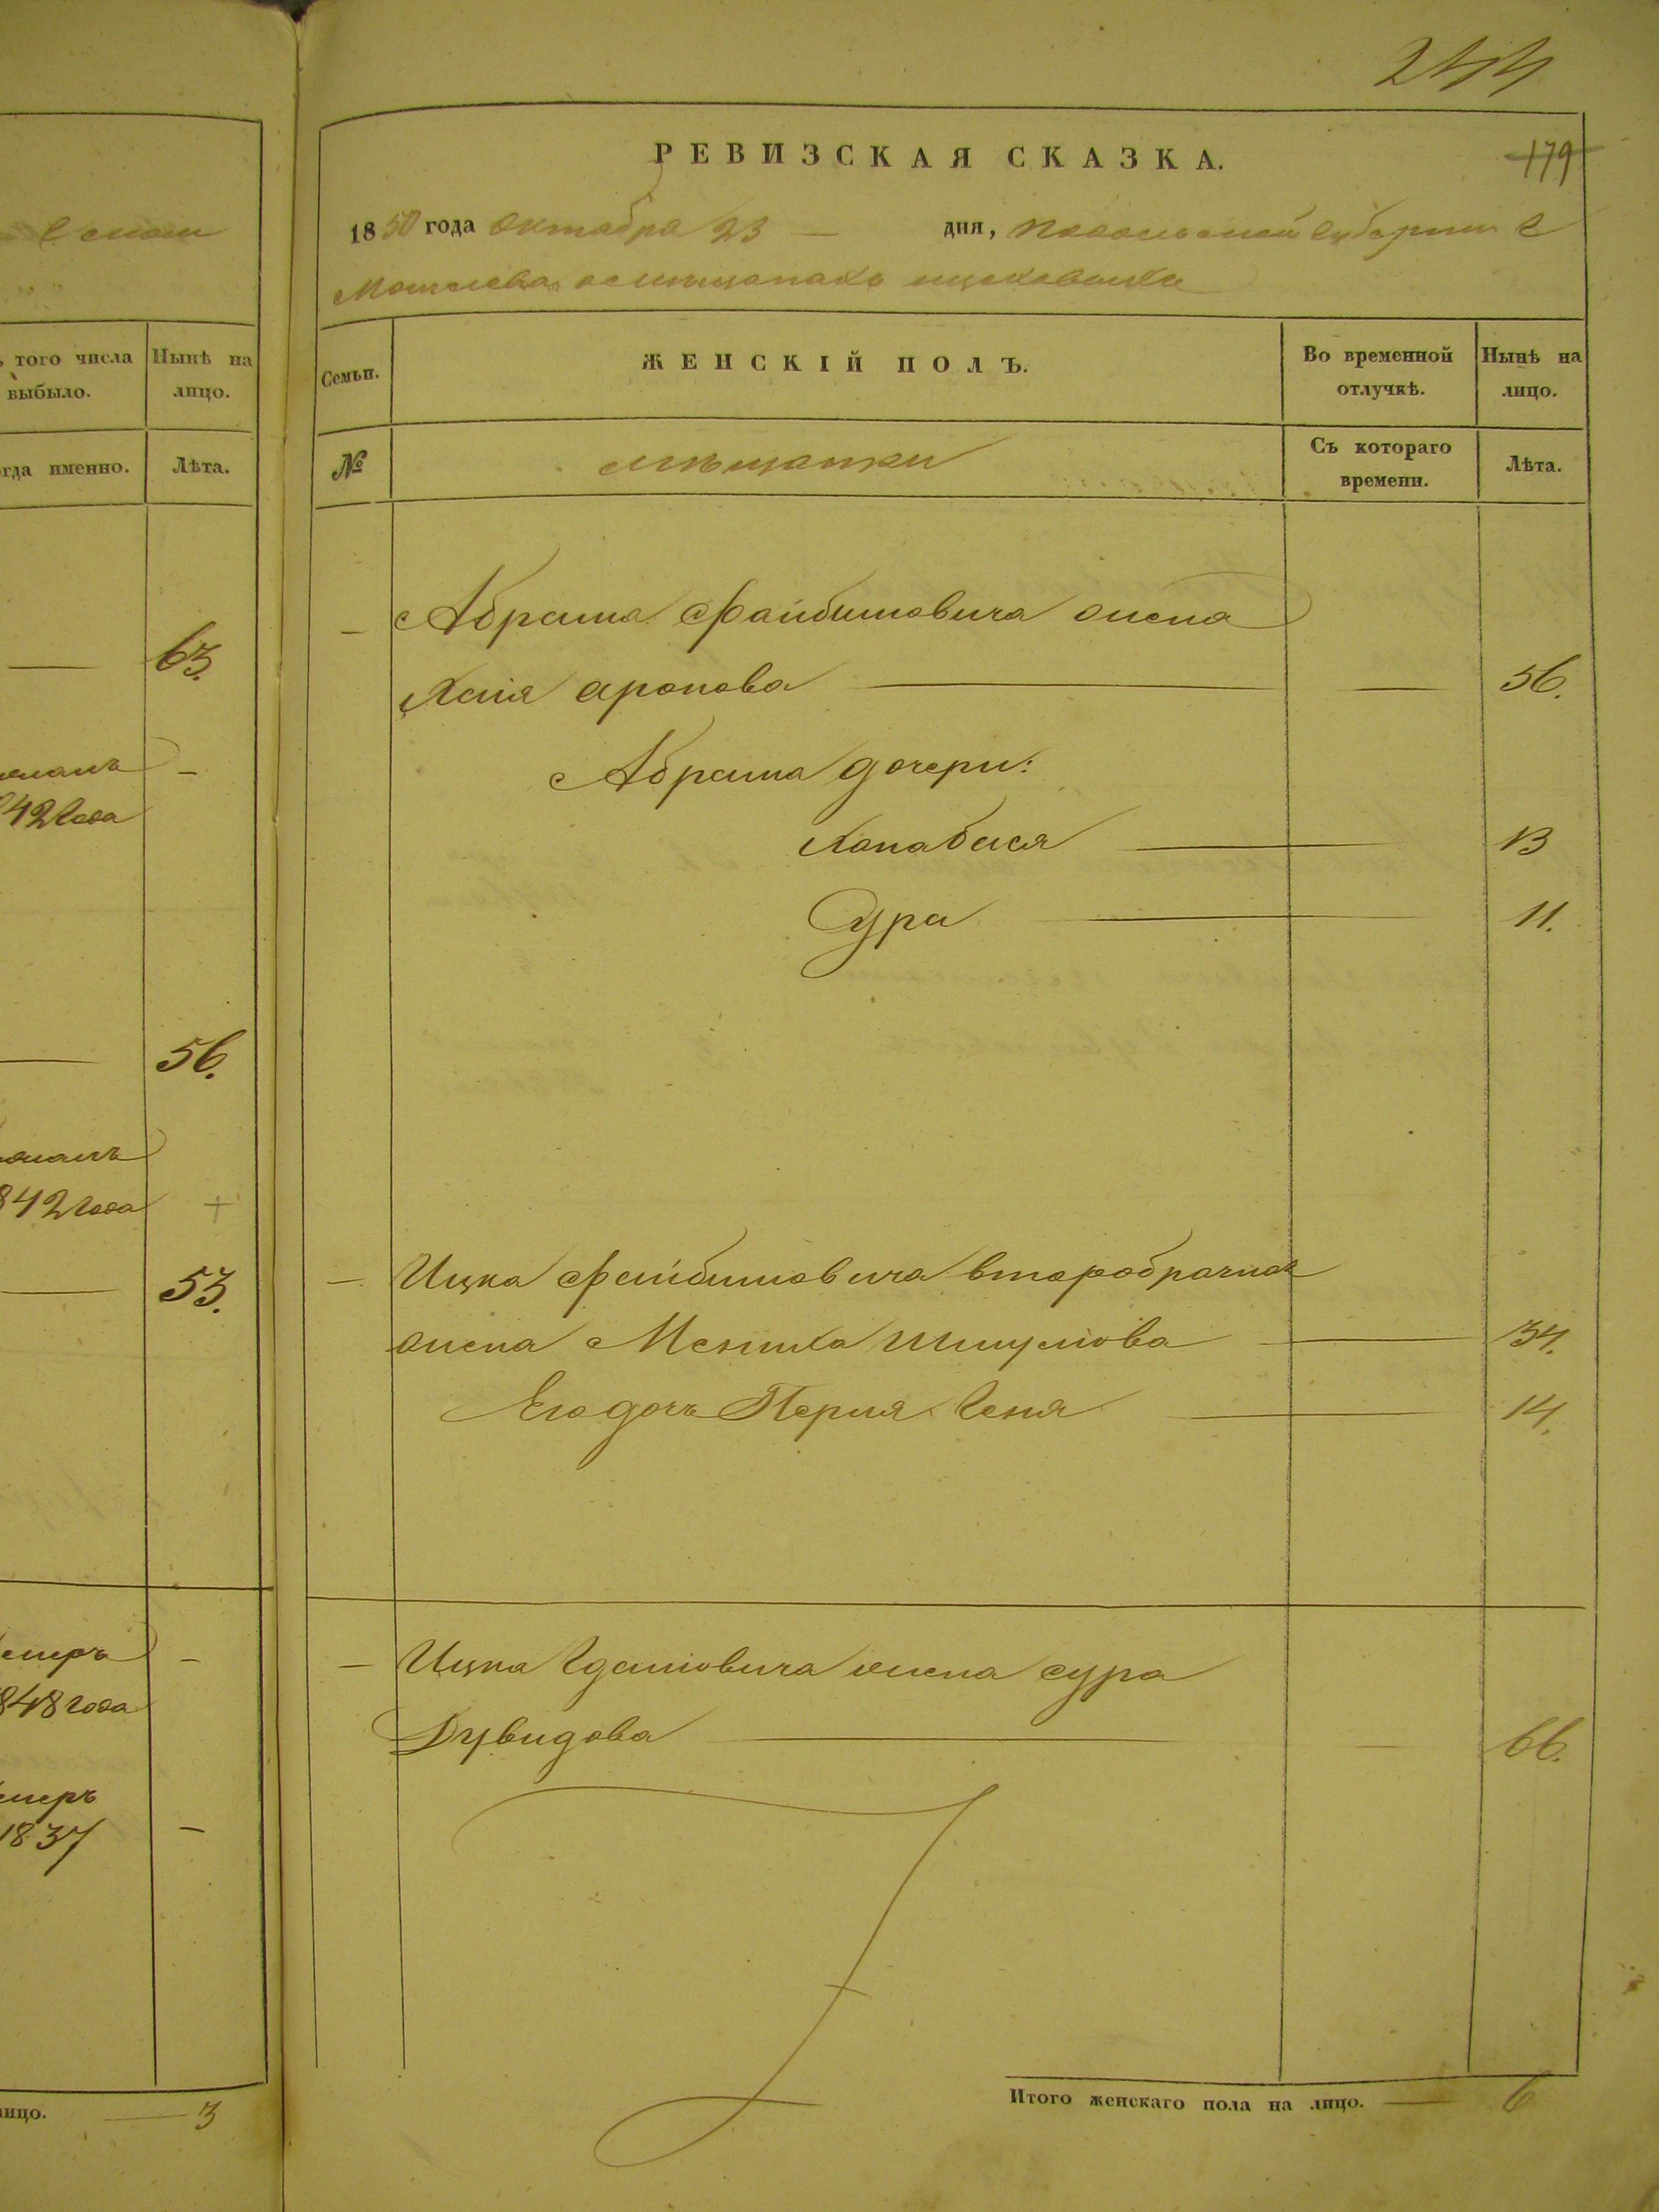 244
РЕВИЗСКАЯ СКАЗКА.
179
1850 года октабра 23 — дня, Подольской губернии г
Могилева о мѣщанахъ
Семьи.
ЖЕНСКІЙ ПОЛЪ.
Во временной отлучкѣ.
Нынѣ на лицо.
№
мѣщанки
Съ котораго времени.
Лѣта.
Абрама Файбишовича жена
Хаія аронова — — 56.
Абрама дочери:
Ханабася — 13
Сура — 11.
Ицка Файбишовича второбрачная
жена Мениха Шмулова — 34.
Его дочь Перля Геня — 14.
Ицка Гдаліовича жена сура
Дувидова — — 66.
Итого женскаго пола на лицо. — 6
того числа выбыло.
Нынѣ на лицо.
именно.
Лѣта.
— 63.
—
842 года
— 56.
842 года +
— 53.
умеръ —
848 года
умеръ
1837 —
лицо. — 3